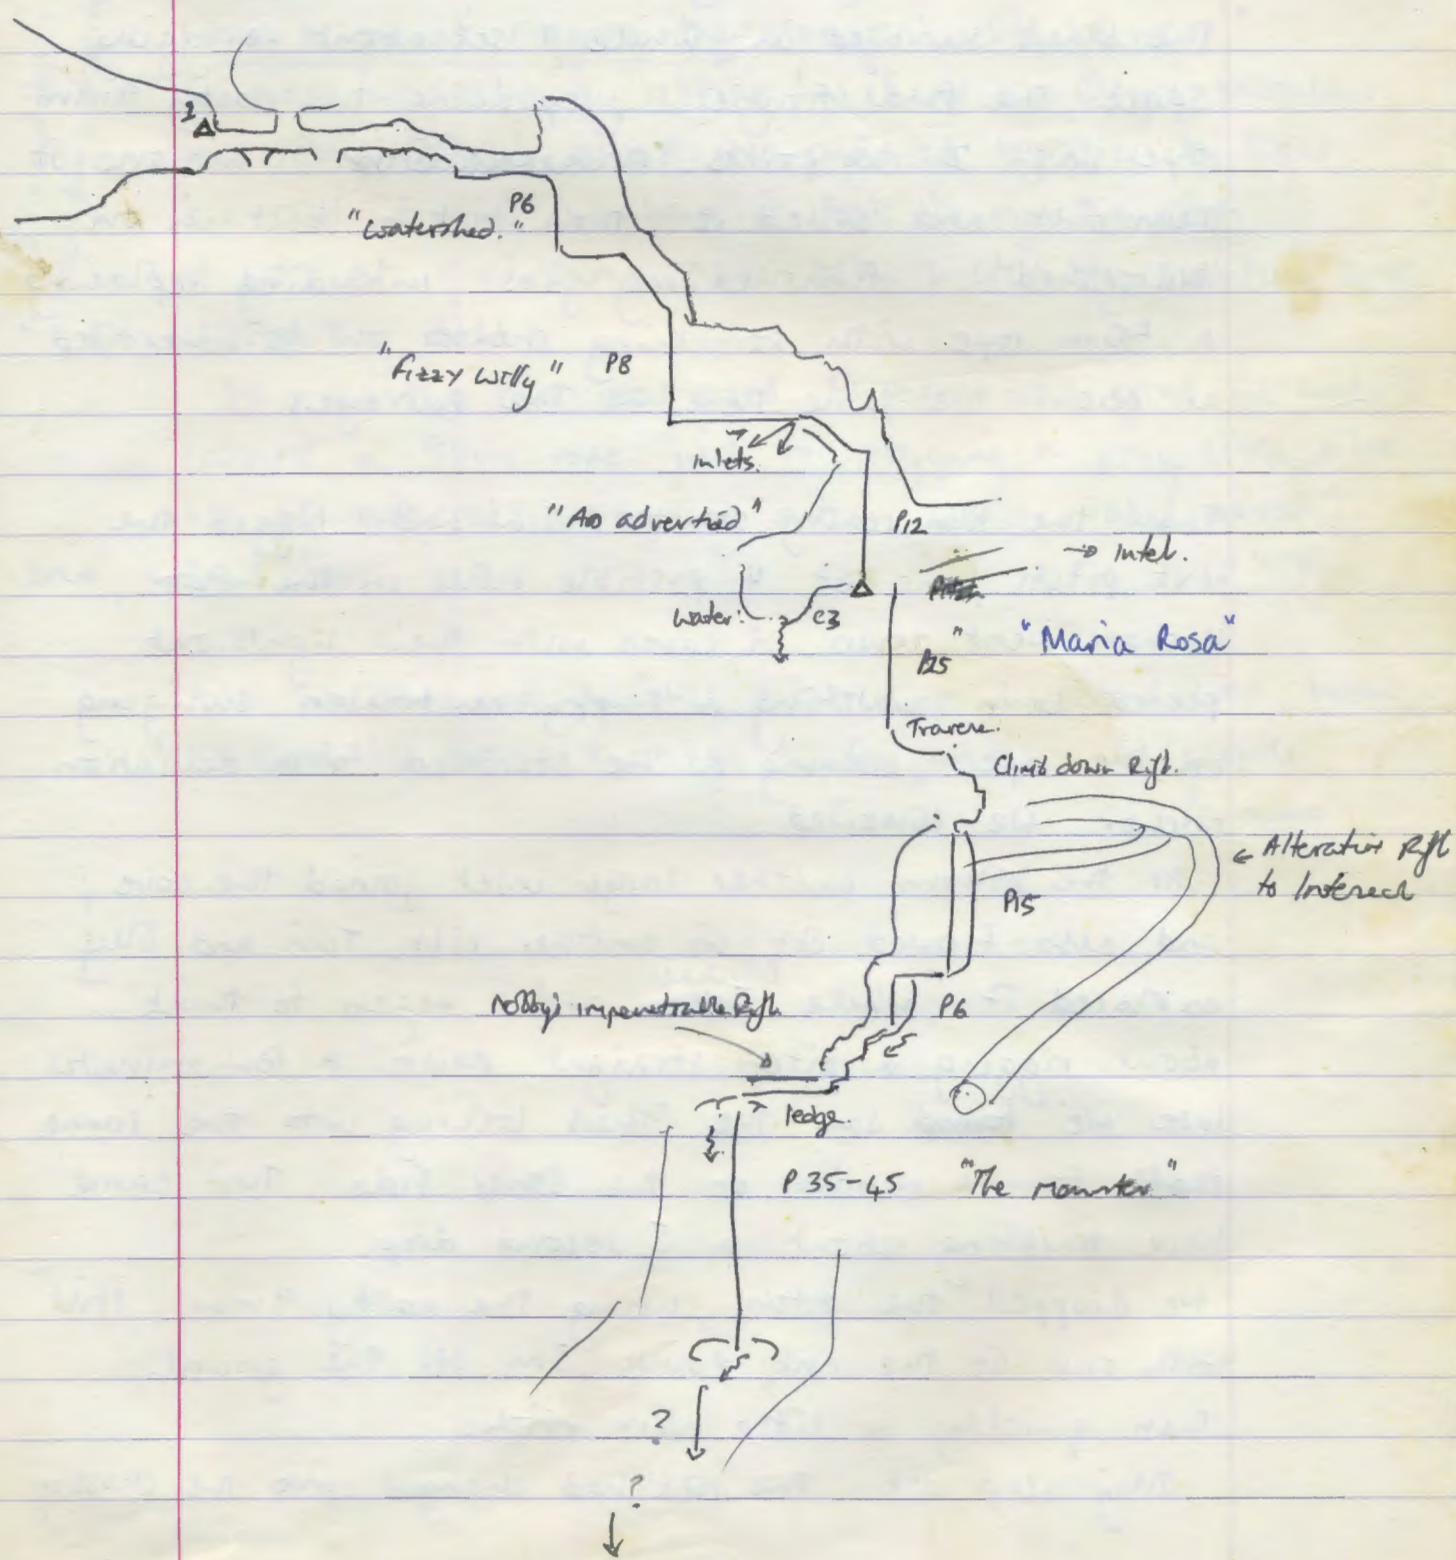 2
P6
"Watershed."
"Fizzy Willy"
P8
Inlets.
"As advertised"
P12
→ Inlet.
Water.
C3
P25
"Maria Rosa"
Traverse.
Climb down Rift.
← Alternative Rift
to Intersect
P15
Nobby's impenetrable Rift
P6
ledge.
P 35-45 "The monster"
?
?